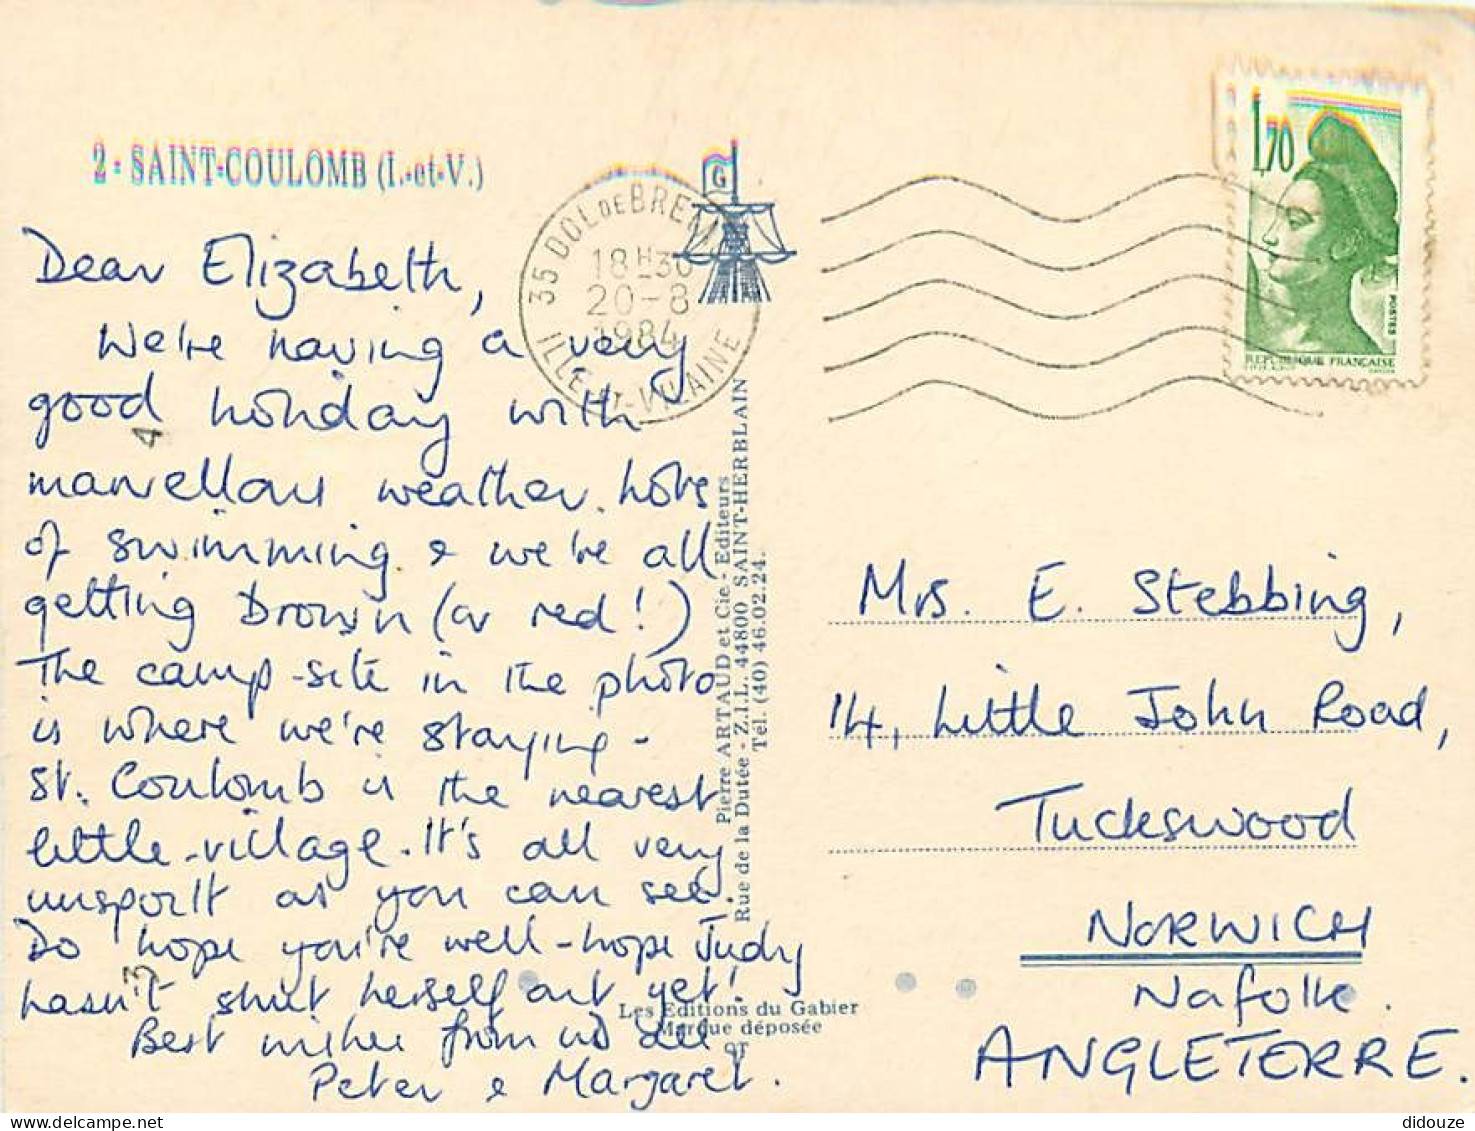 2 - SAINT-COULOMB (I.-et-V.)
Dear Elizabeth,
We're having a very
good holiday with
marvellous weather. Lots
of swimming & we're all
getting brown (or red!)
The camp-site in the photo
is where we're staying -
St. Coulomb is the nearest
little village. It's all very
unspoilt as you can see.
Do hope you're well - hope Judy
hasn't shut herself out yet!
Best wishes from us all
Peter & Margaret.
G
35 DOL DE BRET
18H30
20-8
1984
ILLE ET-VILAINE
Pierre ARTAUD et Cie - Editeurs
Rue de la Dutée - Z.I.L. 44800 SAINT-HERBLAIN
Tél. (40) 46.02.24.
Les Editions du Gabier
Marque déposée
1,70
POSTES
REPUBLIQUE FRANÇAISE
Mrs. E. Stebbing,
14, Little John Road,
Tuckswood
NORWICH
Norfolk.
ANGLETERRE.
4
3
didouze